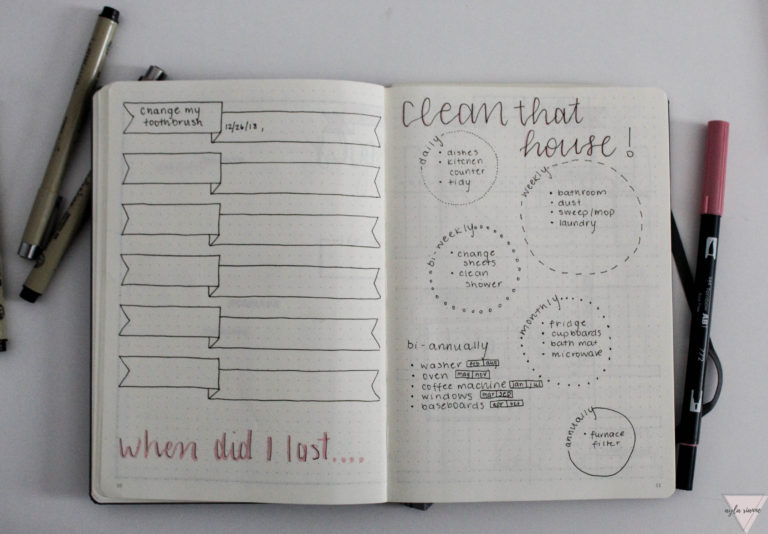 change my
toothbrush
12/26/18,
when did I last....
clean that
house!
daily
• dishes
• kitchen
counter
• tidy
weekly
• bathroom
• dust
• sweep/mop
• laundry
bi-weekly
• change
sheets
• clean
shower
monthly
• fridge
• cupboards
• bath mat
• microwave
bi-annually
• washer feb|aug
• oven may|nov
• coffee machine jan|jul
• windows mar|sep
• baseboards apr|oct
annually
• furnace
filter